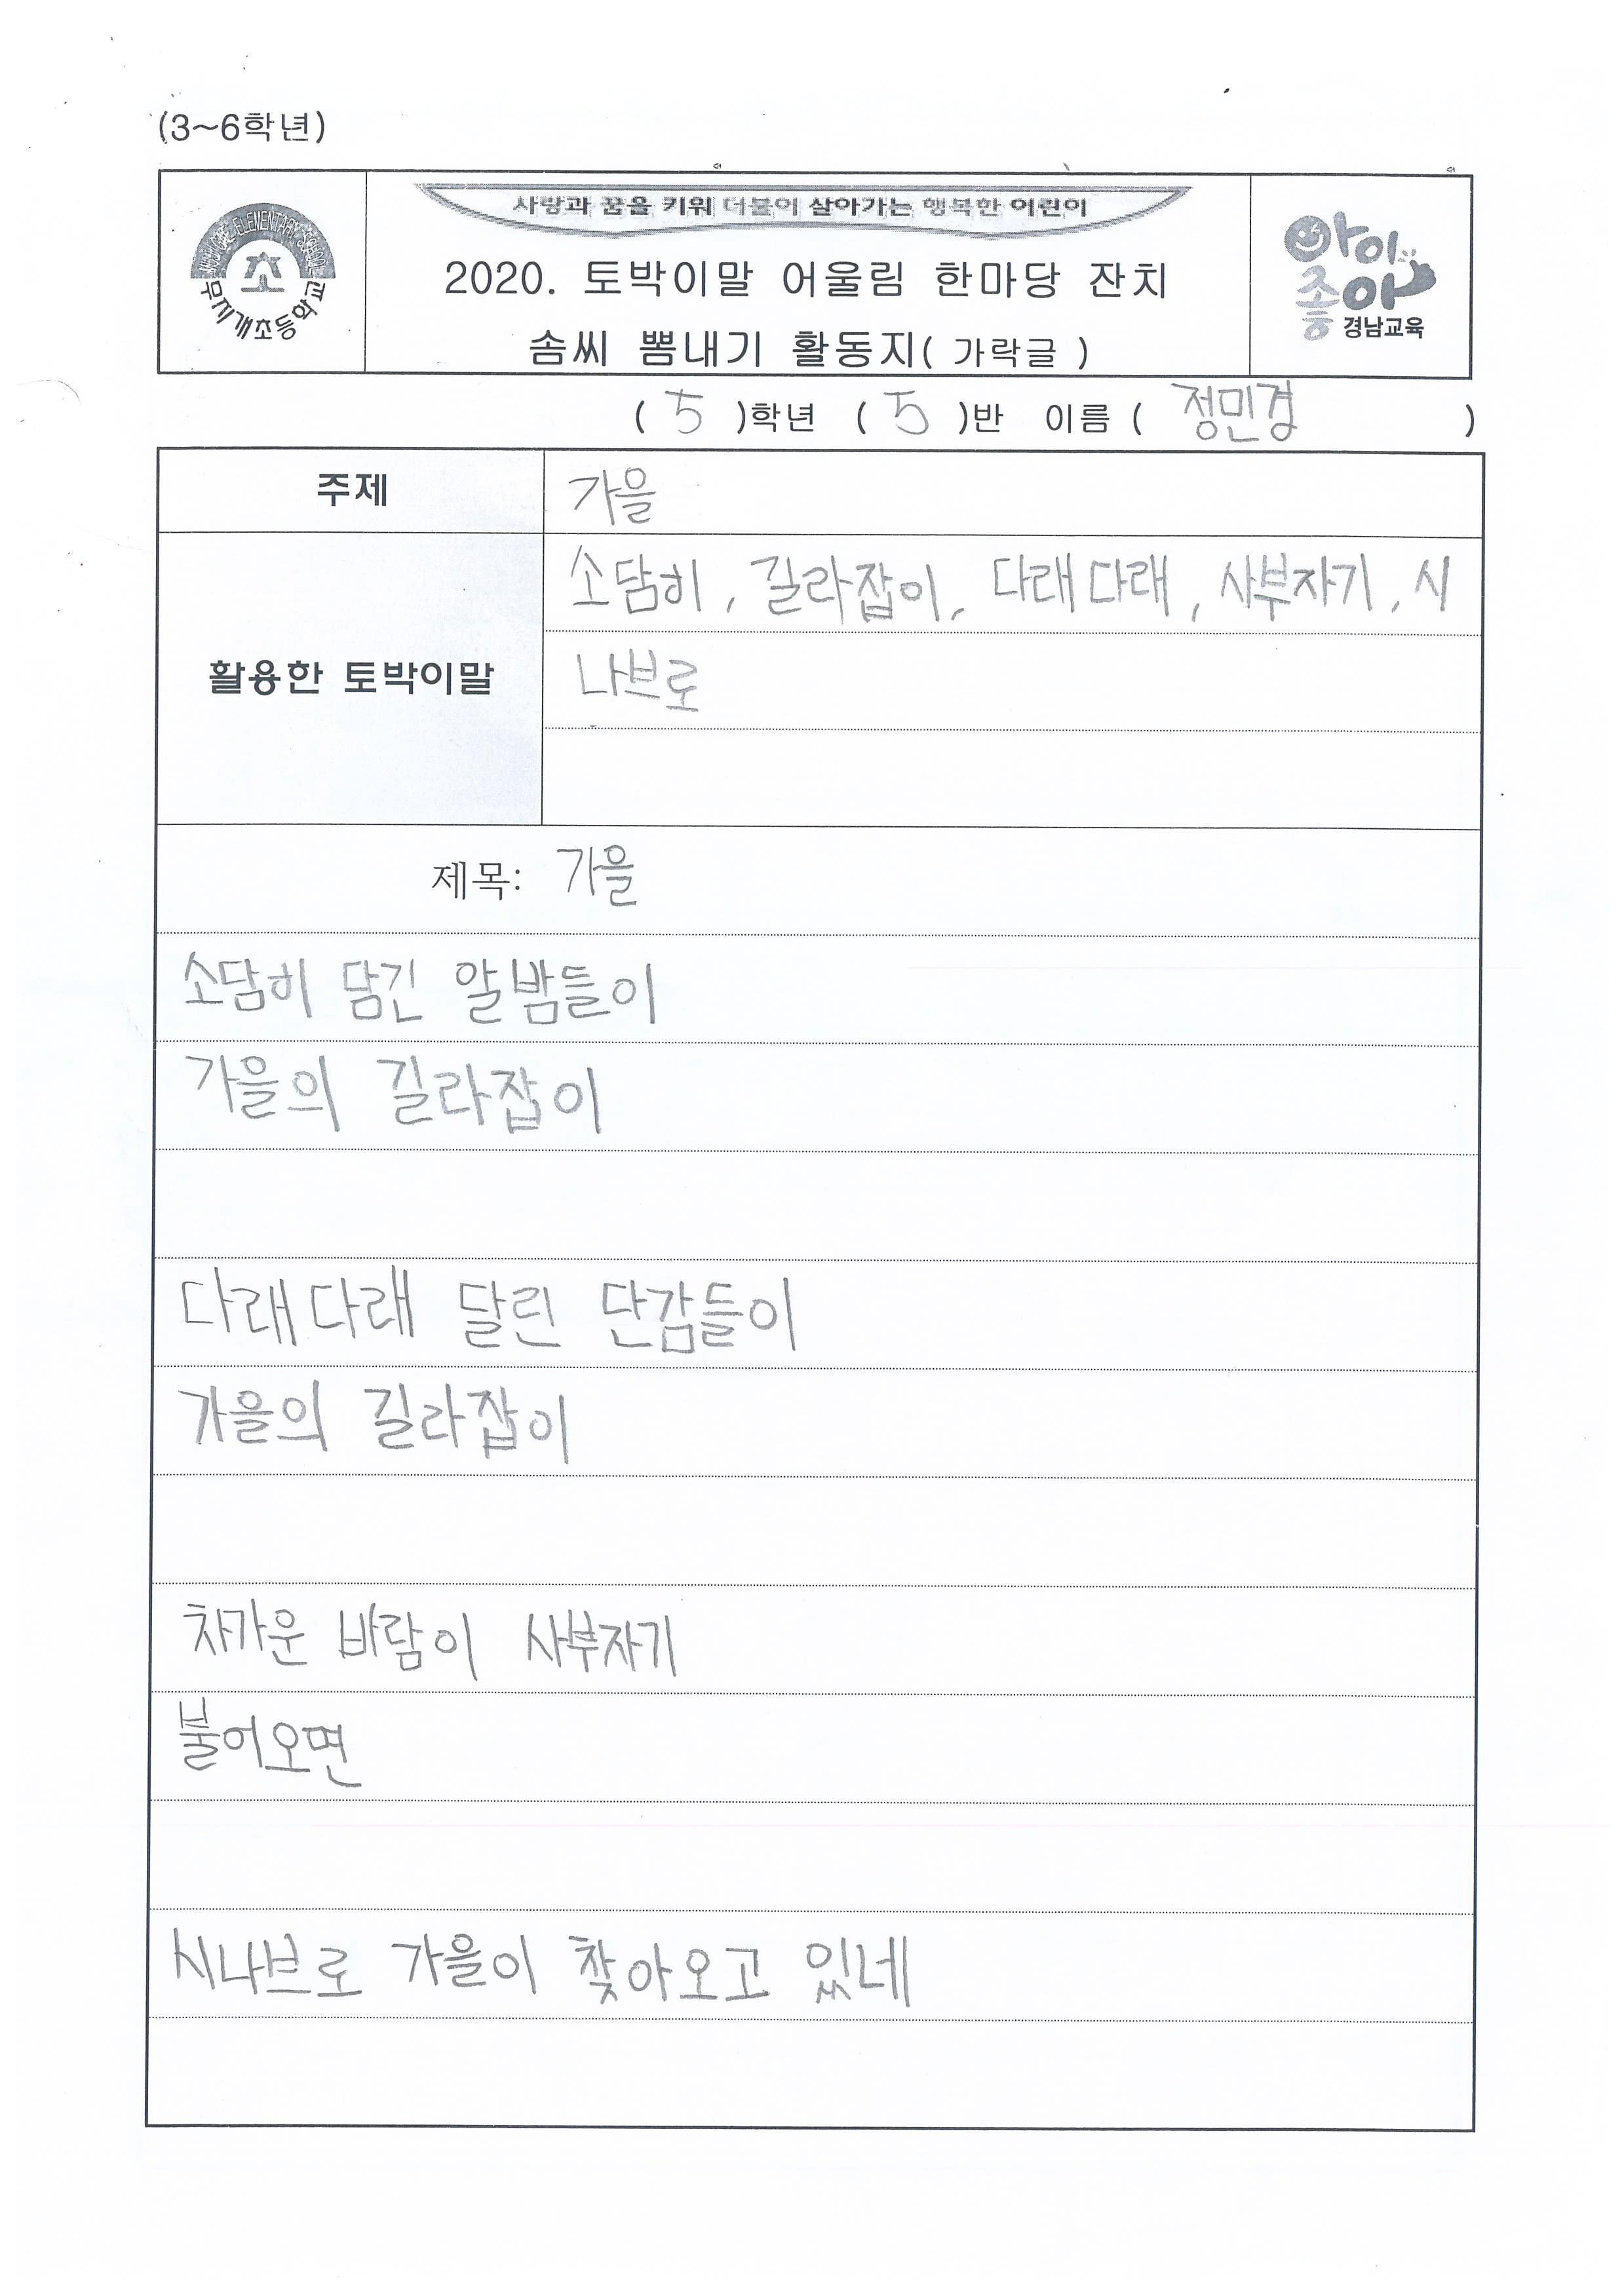 (3~6학년)
MUJIGAE ELEMENTARY SCHOOL
초
무지개초등학교
사랑과 꿈을 키워 더불어 살아가는 행복한 어린이
2020. 토박이말 어울림 한마당 잔치
솜씨 뽐내기 활동지( 가락글 )
아이좋아
경남교육
( 5 )학년 ( 5 )반 이름 ( 정민경 )
주제 가을
활용한 토박이말
소담히, 길라잡이, 다래다래, 사부자기, 시
나브로
제목: 가을
소담히 담긴 알밤들이
가을의 길라잡이
다래다래 달린 단감들이
가을의 길라잡이
차가운 바람이 사부자기
불어오면
시나브로 가을이 찾아오고 있네